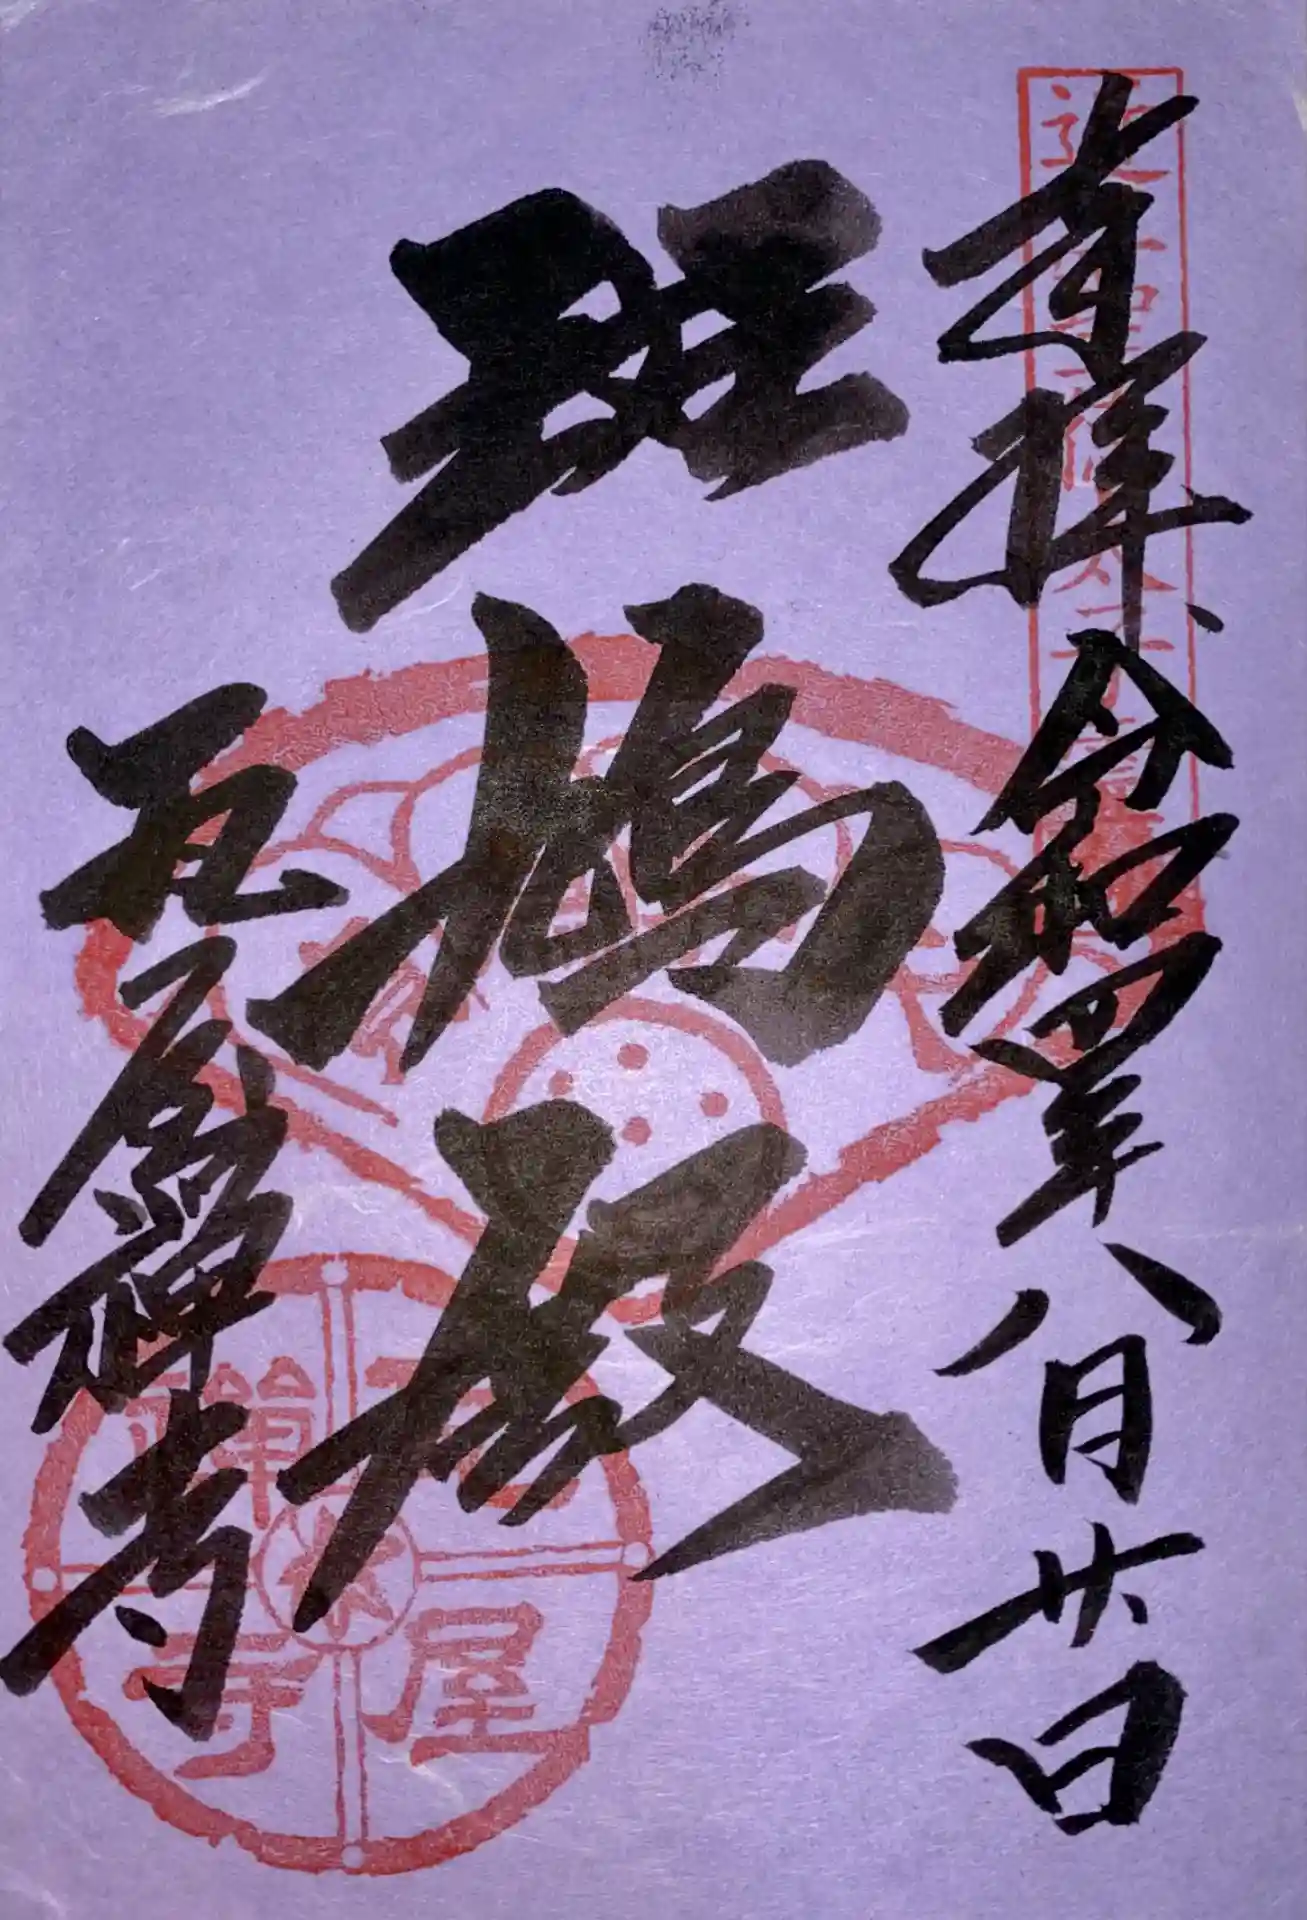 奉拝、令和四年八月廿日
斑鳩殿
瓦屋禅寺
瓦屋禅寺